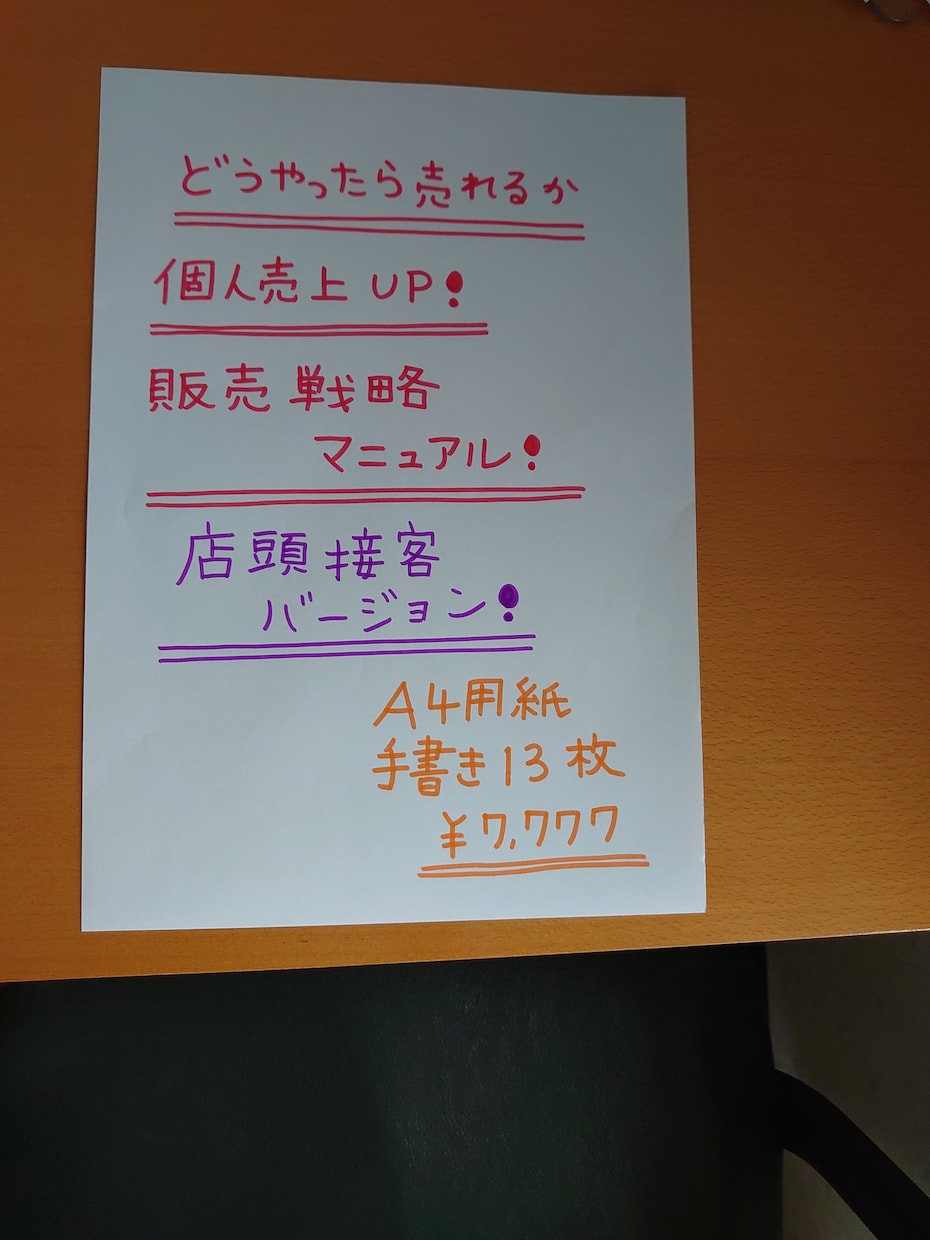 どうやったら売れるか
個人売上UP!
販売戦略
マニュアル!
店頭接客
バージョン!
A4用紙
手書き13枚
¥7,777